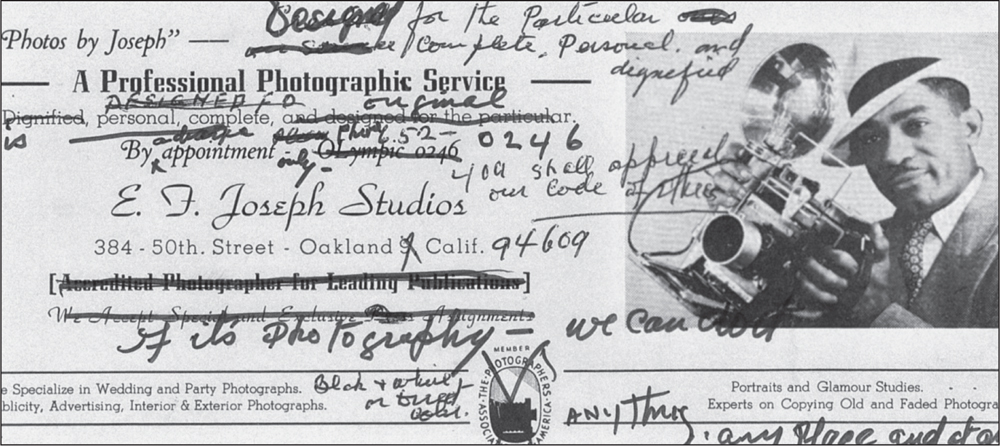 Designed for the Particular
complete, Personal. and
dignified
"Photos by Joseph" —
A Professional Photographic Service
DESIGNED FO original
Dignified, personal, complete, and designed for the particular.
is
advance Phone 652-0246
By appointment - OLympic 0246
only -
you shall
our Code of
E. F. Joseph Studios
384 - 50th. Street - Oakland 9, Calif. 94609
[Accredited Photographer for Leading Publications]
We Accept Special and Exclusive Press Assignments
If it's Photography — we can do it
MEMBER
THE PHOTOGRAPHERS ASSOCIA AMERICA
e Specialize in Wedding and Party Photographs.
blicity, Advertising, Interior & Exterior Photographs.
Black + white
or
color.
Portraits and Glamour Studies.
Experts on Copying Old and Faded Photogra
ANything
any Place and